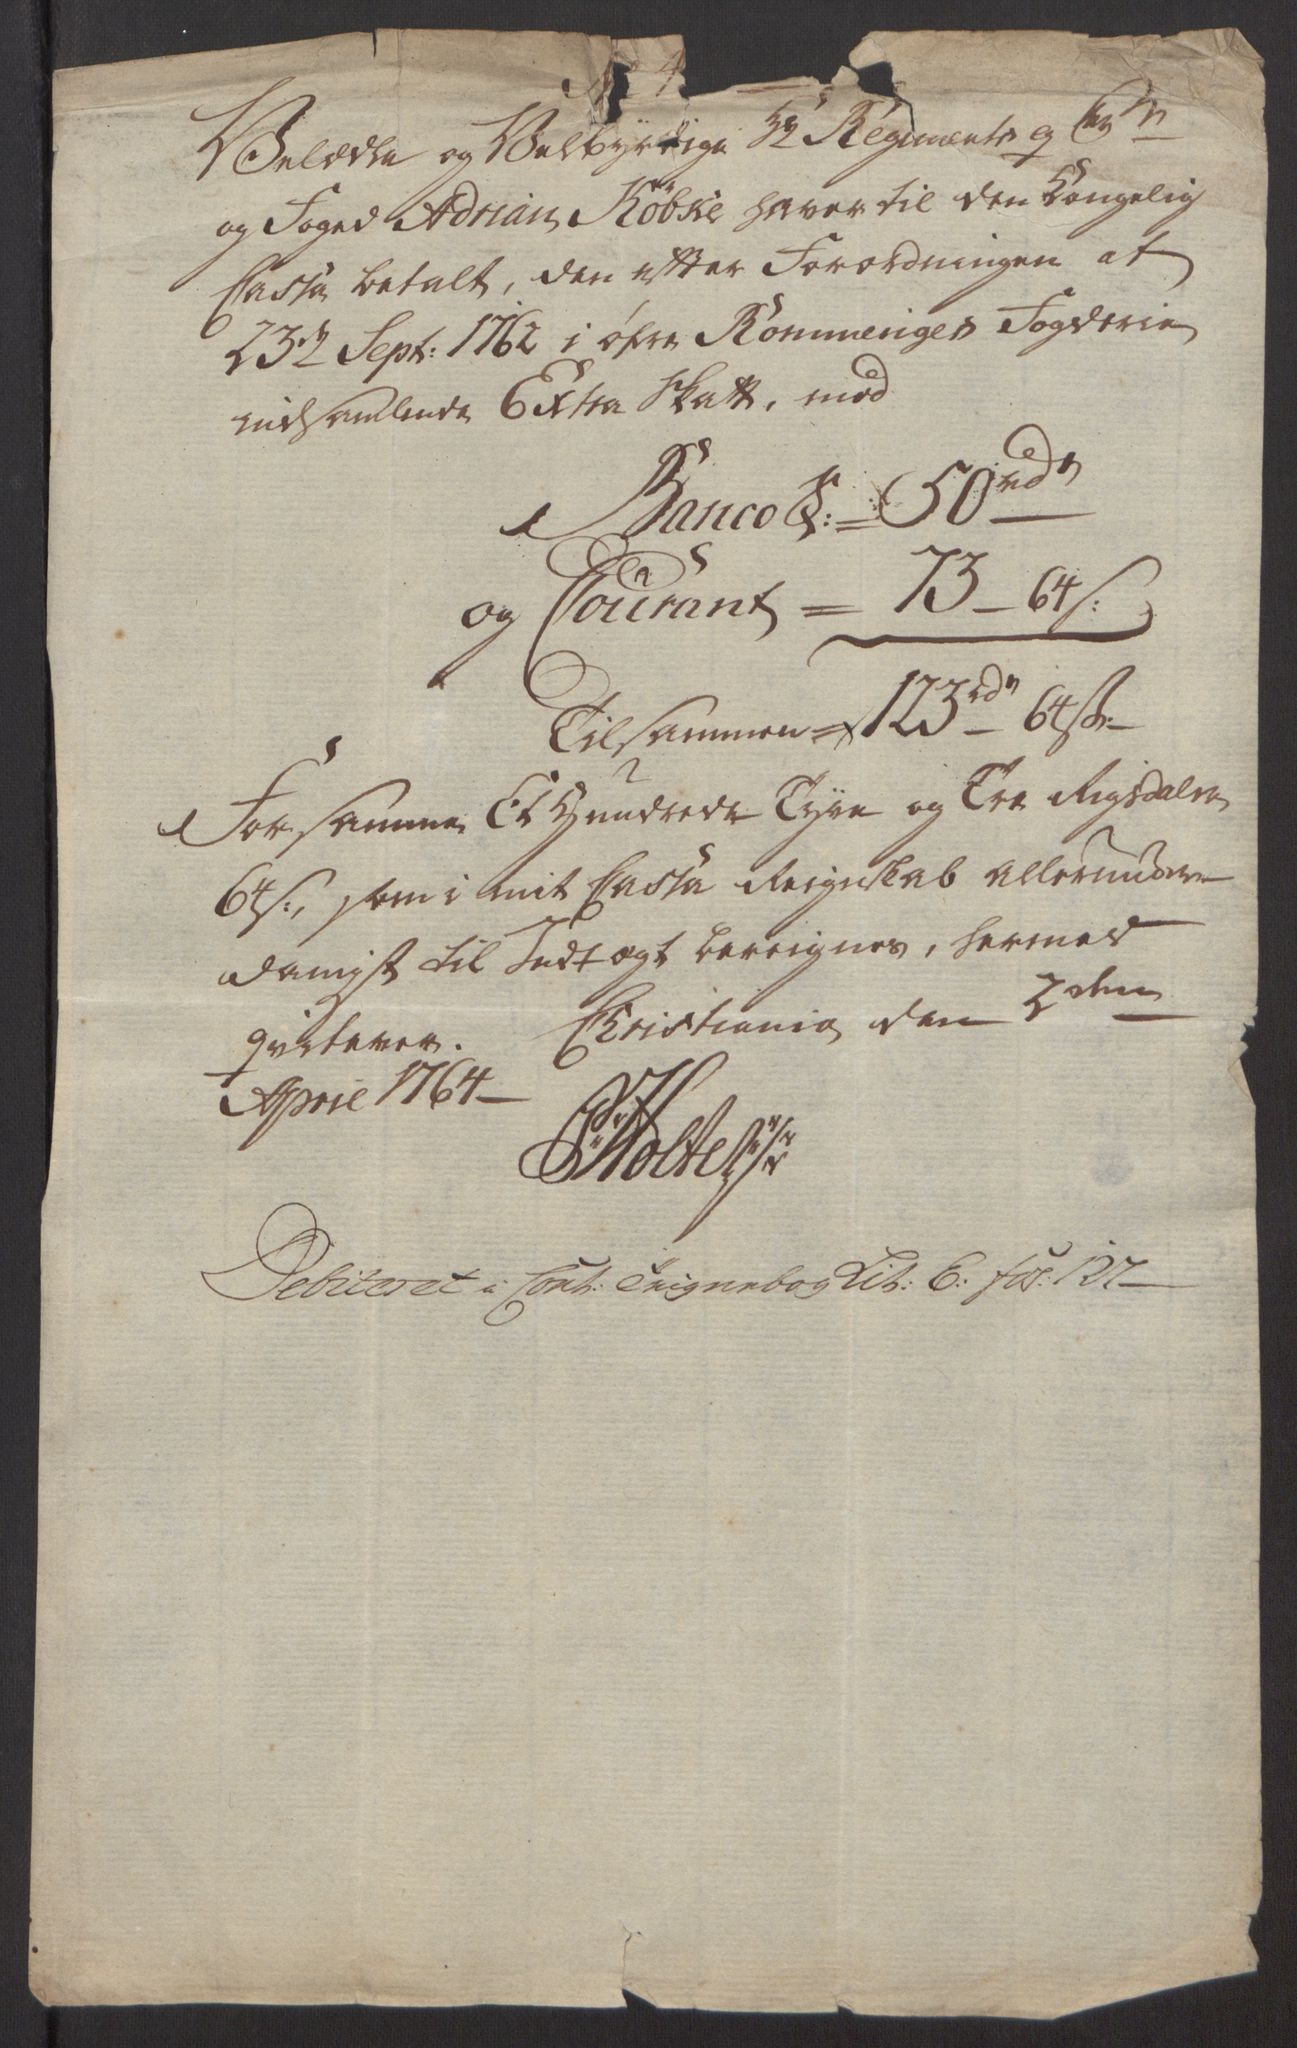 No 4
Velædle og Velbyrdige Hr Regiments q
og Foged Adrian Købke haver til den Kongelig
Cassa betalt, den efter Forordningen af
23de Sept: 1762 i øfre Rommeriges Fogderie
indsamlende Extra Skatt, med
Banco S: = 50 rdr
og Courant = 73 - 64 s:
Tilsammen = 123 rdr 64 s:
For samme Et Hundrede Tyve og Tre Rigsdaler
64 s:, som i mit Cassa Reignskab allerunder-
danigst til Indtægt bereignes, hermed
qviterer. Christiania den 2den
April 1764
Holte
Debiteret i Cont: Teignebog Lit: E: fol: 137